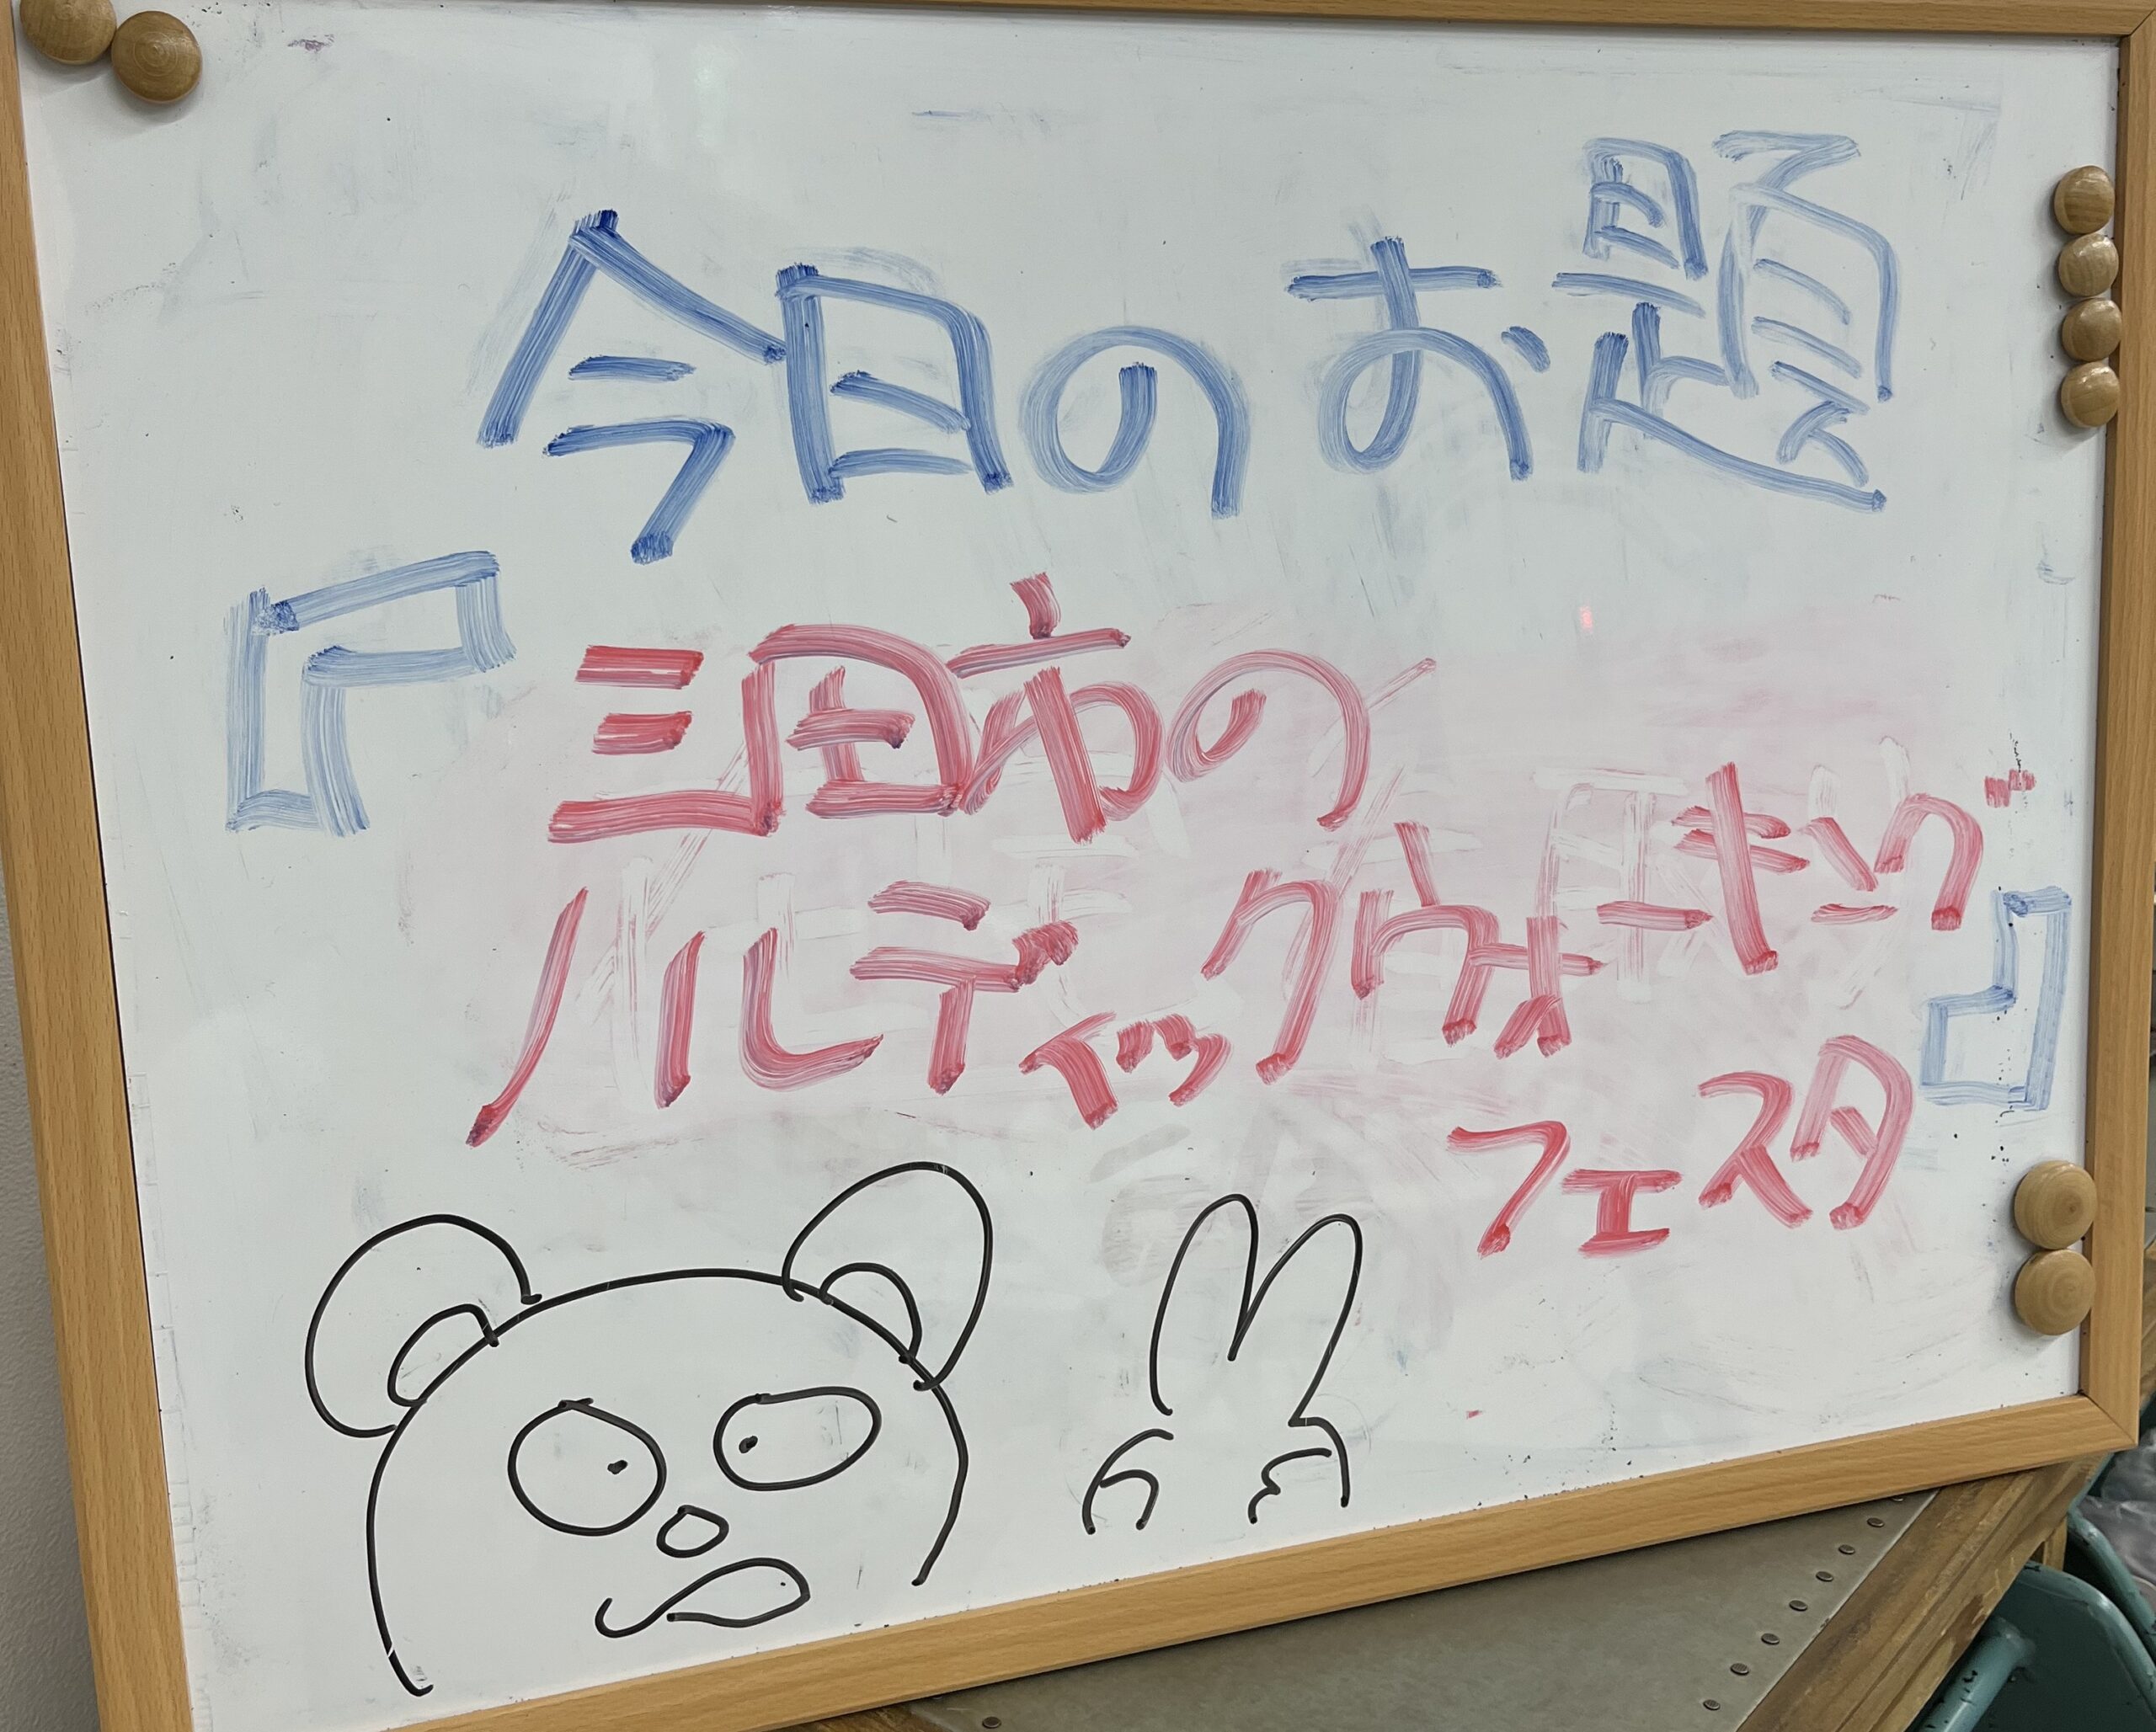 今日のお題
『三田市の
ノルディックウォーキング
フェスタ』